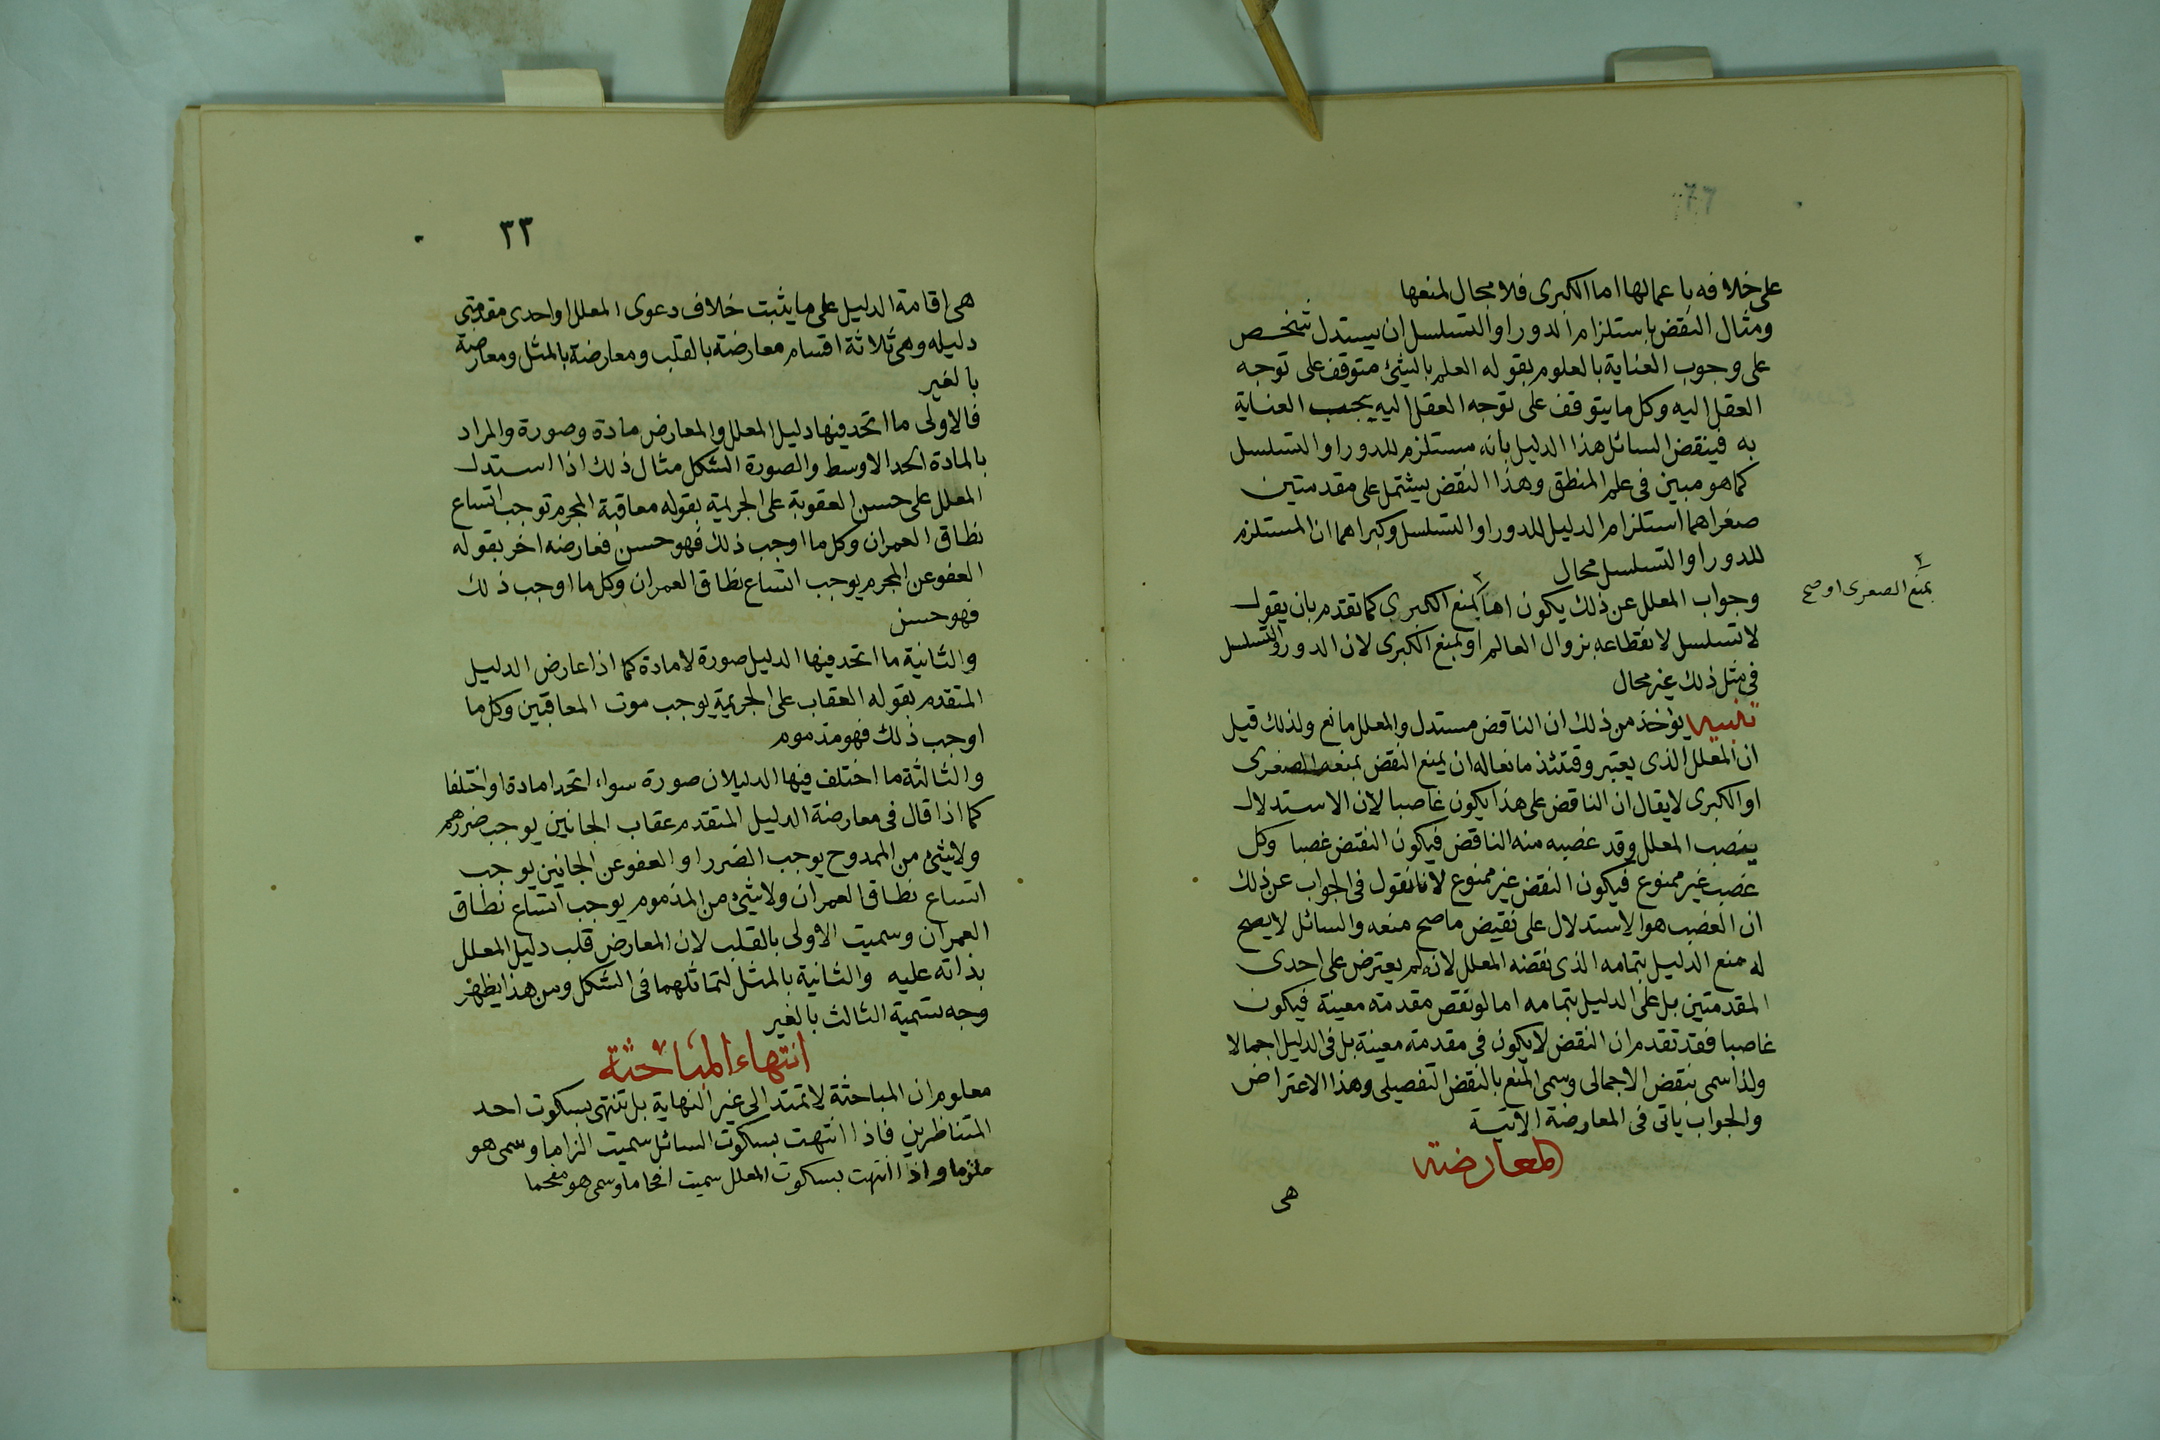 على خلافه باعمالها اما الكبرى فلا مجال لمنعها
ومثال النقض باستلزام الدور او التسلسل ان يستدل شخص
على وجوب العناية بالعلوم بقوله العلم بالشئ متوقف على توجه
العقل اليه وكل ما يتوقف على توجه العقل اليه يجب العناية
به فينقض السائل هذا الدليل بانه مستلزم للدور او التسلسل
كما هو مبين فى علم المنطق وهذا النقض يشتمل على مقدمتين
صغراهما استلزام الدليل للدور او التسلسل وكبراهما ان المستلزم
للدور او التسلسل محال
وجواب المعلل عن ذلك يكون اما ٢ بمنع الكبرى كما تقدم بان يقول
٢ بمنع الصغرى او صح
لا تسلسل لانقطاعه بزوال العالم او بمنع الكبرى لان الدور او التسلسل
فى مثل ذلك غير محال
تنبيه يؤخذ من ذلك ان الناقض مستدل والمعلل مانع ولذلك قيل
ان المعلل الذى يعتبر وقتئذ مانعا له ان يمنع النقض بمنعه الصغرى
او الكبرى لا يقال ان الناقض على هذا يكون غاصبا لان الاستدلال
بنصب المعلل وقد غصبه منه الناقض فيكون النقض غصبا وكل
غصب غير ممنوع فيكون النقض غير ممنوع لاننا نقول فى الجواب عن ذلك
ان الغصب هو الاستدلال على نقيض ما صح منعه والسائل لا يصح
له منع الدليل بتمامه الذى نقضه المعلل لانه لم يعترض على احدى
المقدمتين بل على الدليل بتمامه اما لو نقض مقدمة معينة فيكون
غاصبا فقد تقدم ان النقض لا يكون فى مقدمة معينة بل فى الدليل اجمالا
ولذا سمى بنقض الاجمالى وسمى المنع بالنقض التفصيلى وهذا الاعتراض
والجواب ياتى فى المعارضة الاتية
المعارضة
هى
٣٣
هى اقامة الدليل على ما يثبت خلاف دعوى المعلل او احدى مقدمتى
دليله وهى ثلاثة اقسام معارضة بالقلب ومعارضة بالمثل ومعارضة
بالغير
فالاولى ما اتحد فيها دليل المعلل والمعارض مادة وصورة والمراد
بالمادة الحد الاوسط والصورة الشكل مثال ذلك اذا استدل
المعلل على حسن العقوبة على الجريمة بقوله معاقبة المجرم توجب اتساع
نطاق العمران وكل ما اوجب ذلك فهو حسن فعارضه اخر بقوله
العفو عن المجرم يوجب اتساع نطاق العمران وكل ما اوجب ذلك
فهو حسن
والثانية ما اتحد فيها الدليل صورة لا مادة كما اذا عارض الدليل
المتقدم بقوله العقاب على الجريمة يوجب موت المعاقبين وكل ما
اوجب ذلك فهو مذموم
والثالثة ما اختلف فيها الدليلان صورة سواء اتحدا مادة او اختلفا
كما اذا قال فى معارضة الدليل المتقدم عقاب الجانين يوجب ضررهم
ولا شئ من الممدوح يوجب الضرر او العفو عن الجانين يوجب
اتساع نطاق العمران ولا شئ من المذموم يوجب اتساع نطاق
العمران وسميت الاولى بالقلب لان المعارض قلب دليل المعلل
بذاته عليه والثانية بالمثل لتماثلهما فى الشكل ومن هذا يظهر
وجه تسمية الثالث بالغير
انتهاء المباحثة
معلوم ان المباحثة لا تمتد الى غير النهاية بل تنتهى بسكوت احد
المتناظرين فاذا انتهت بسكوت السائل سميت الزاما وسمى هو
ملزما واذا انتهت بسكوت المعلل سميت افحاما وسمى هو مفحما